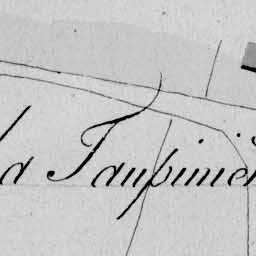 la Taupinië